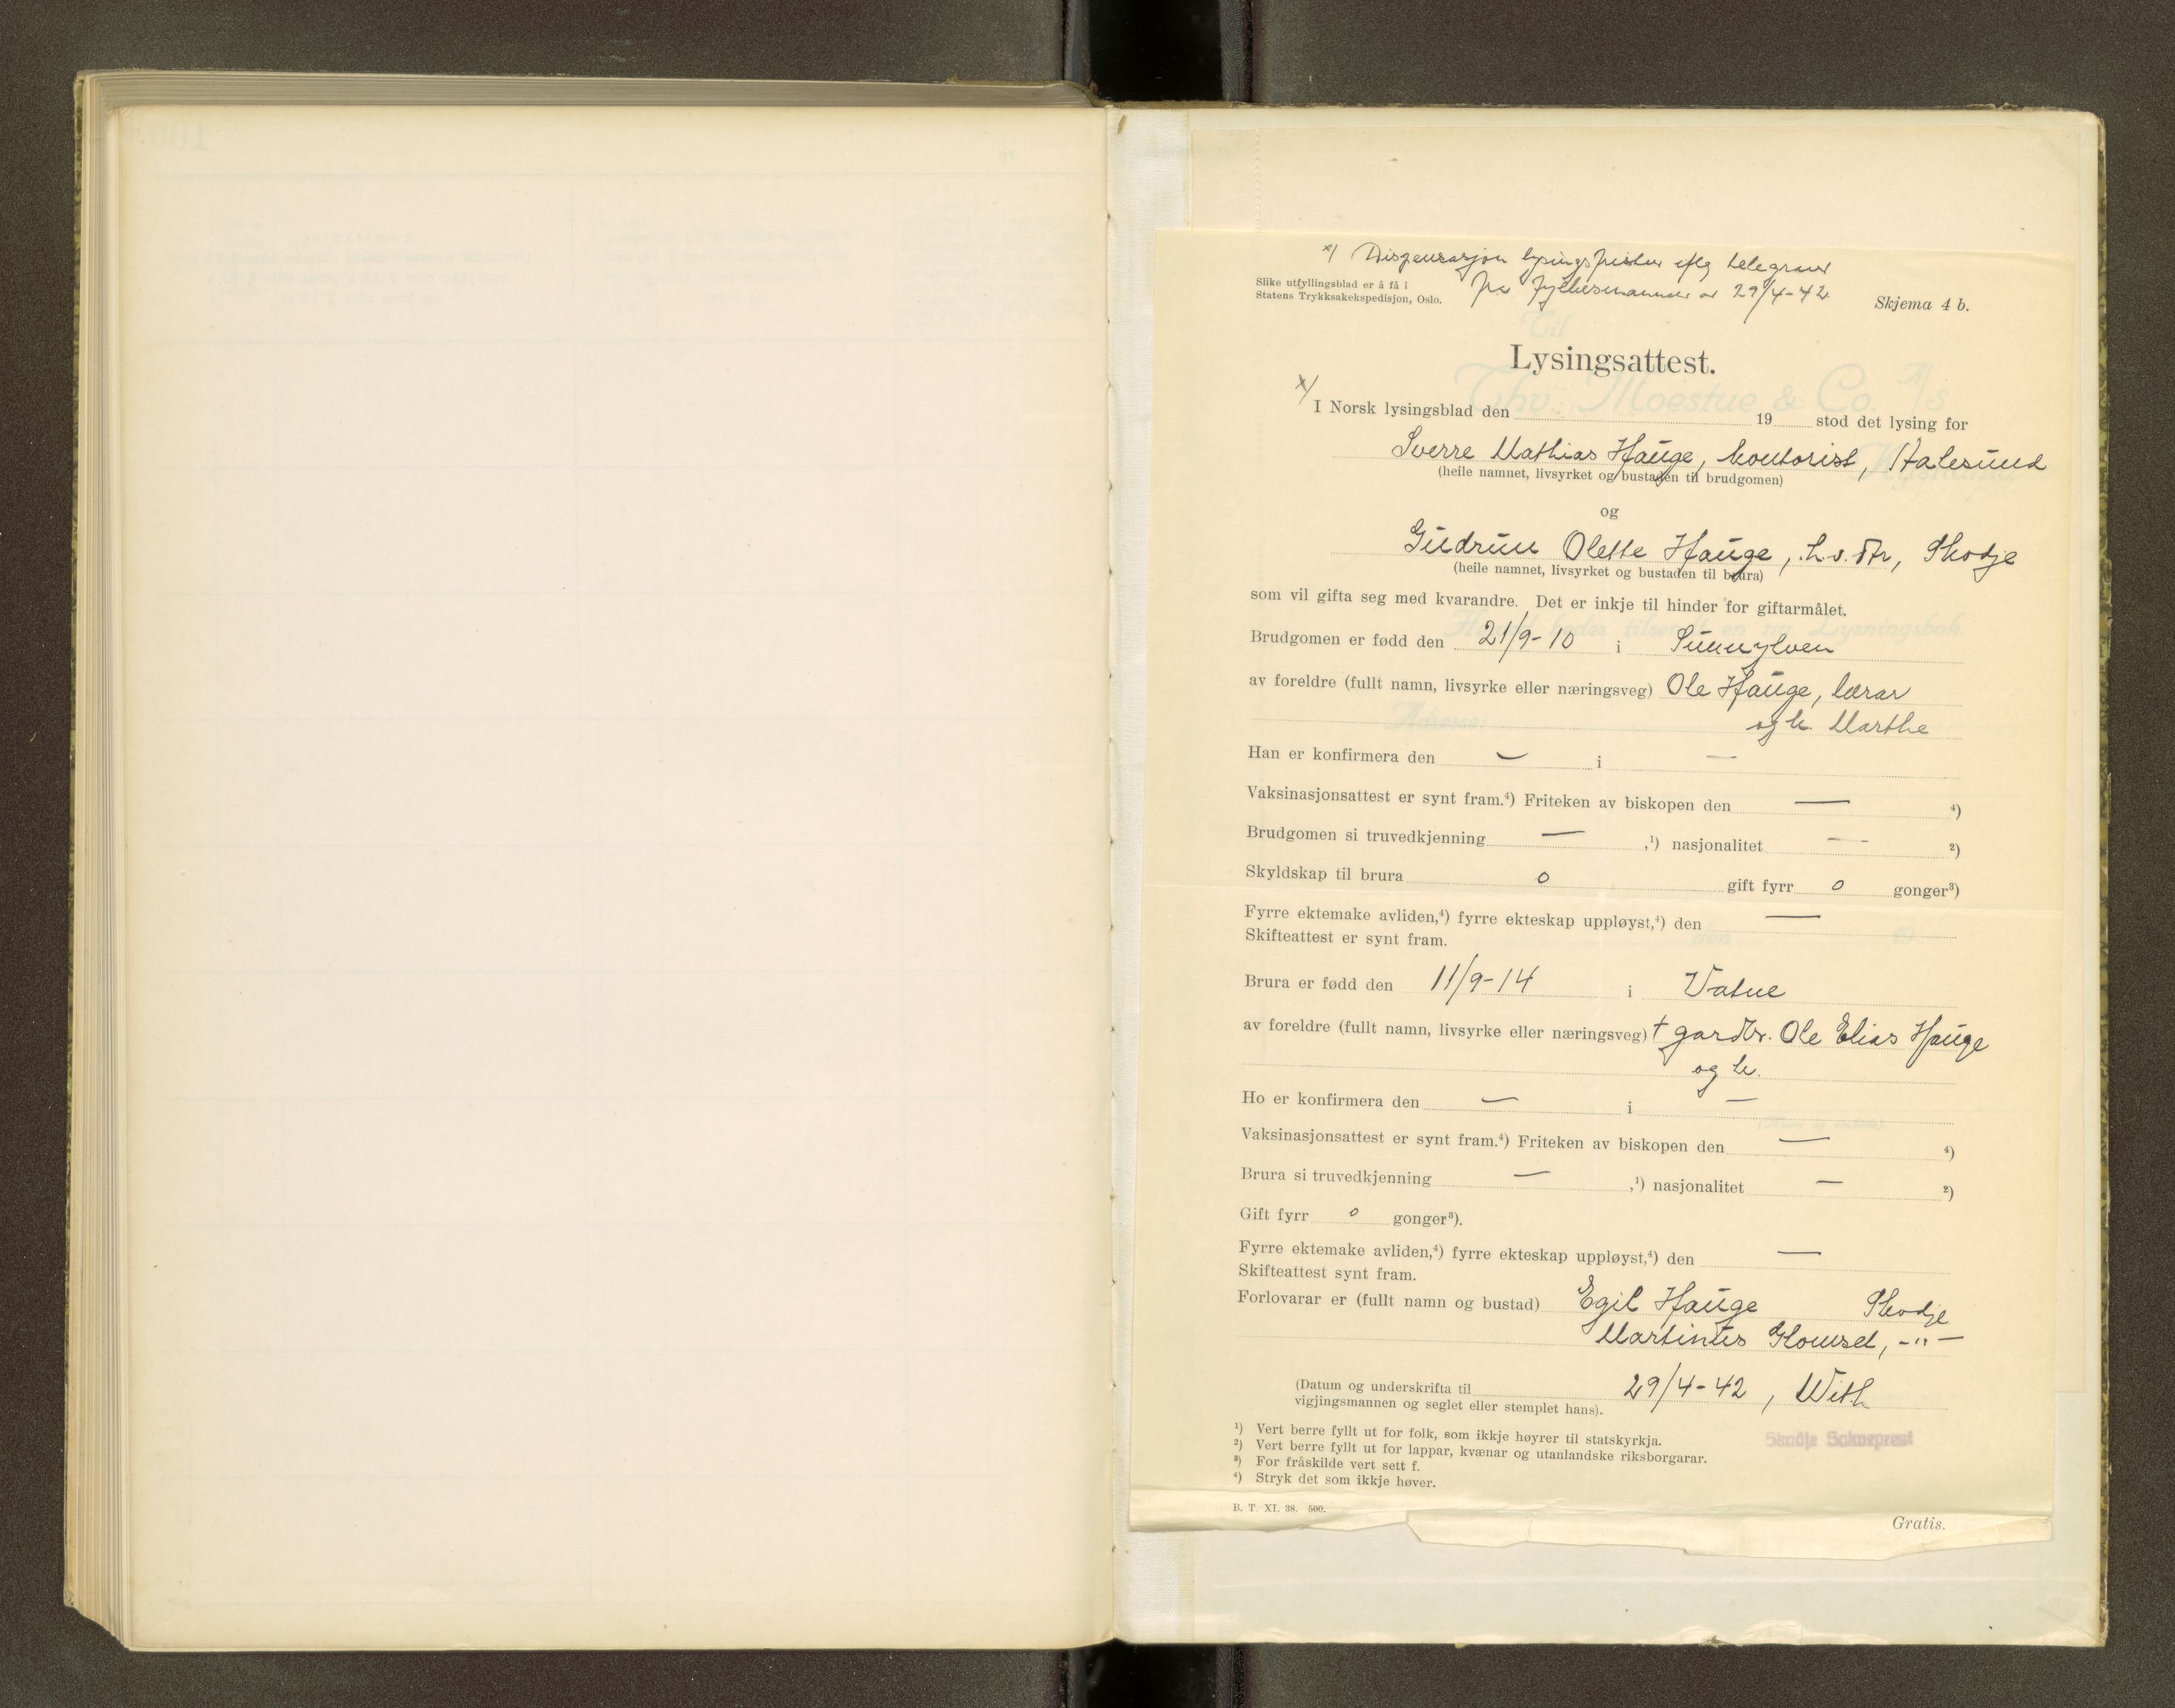 x) Dispensasjon lysingsfristen iflg telegram
fra fylkesmannen av 29/4-42
Slike utfyllingsblad er å få i
Statens Trykksakekspedisjon, Oslo.
Skjema 4 b.
Lysingsattest.
x) I Norsk lysingsblad den 19 stod det lysing for
Sverre Mathias Hauge, kontorist, Ålesund
(heile namnet, livsyrket og bustaden til brudgomen)
og
Gudrun Olette Hauge, h.v.dtr, Skodje
(heile namnet, livsyrket og bustaden til brura)
som vil gifta seg med kvarandre. Det er inkje til hinder for giftarmålet.
Brudgomen er fødd den 21/9-10 i Sunnylven
av foreldre (fullt namn, livsyrke eller næringsveg) Ole Hauge, lærar
og h. Marthe
Han er konfirmera den — i —
Vaksinasjonsattest er synt fram.⁴) Friteken av biskopen den — ⁴)
Brudgomen si truvedkjenning — ,¹) nasjonalitet — ²)
Skyldskap til brura 0 gift fyrr 0 gonger³)
Fyrre ektemake avliden,⁴) fyrre ekteskap uppløyst,⁴) den —
Skifteattest er synt fram.
Brura er fødd den 11/9-14 i Vatne
av foreldre (fullt namn, livsyrke eller næringsveg) † gardbr. Ole Elias Hauge
og h.
Ho er konfirmera den — i —
Vaksinasjonsattest er synt fram.⁴) Friteken av biskopen den — ⁴)
Brura si truvedkjenning — ,¹) nasjonalitet — ²)
Gift fyrr 0 gonger³).
Fyrre ektemake avliden,⁴) fyrre ekteskap uppløyst,⁴) den —
Skifteattest synt fram.
Forlovarar er (fullt namn og bustad) Egil Hauge Skodje
Martinus Glomset, -"-
(Datum og underskrifta til 29/4-42, With
vigjingsmannen og seglet eller stemplet hans).
Skodje Sokneprest
¹) Vert berre fyllt ut for folk, som ikkje høyrer til statskyrkja.
²) Vert berre fyllt ut for lappar, kvænar og utanlandske riksborgarar.
³) For fråskilde vert sett f.
⁴) Stryk det som ikkje høver.
B. T. XI. 38. 500.
Gratis.